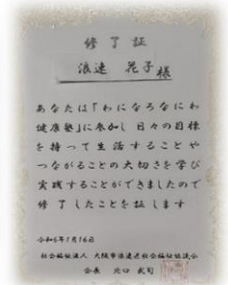 修了証
浪速 花子様
あなたは「わになろなにわ
健康塾」に参加し日々の目標
を持って生活することや
つながることの大切さを学び
実践することができましたので
修了したことを証します
令和6年1月16日
社会福祉法人 大阪市浪速区社会福祉協議会
会長 北口 武司